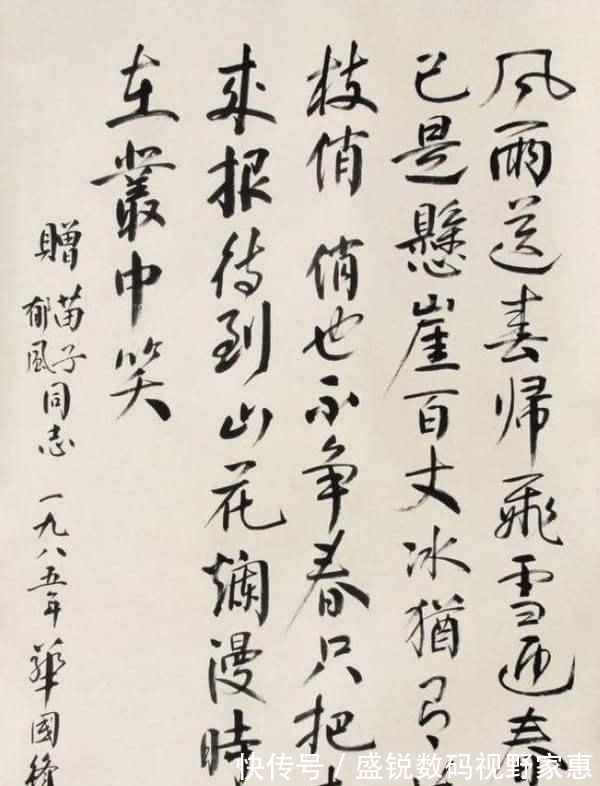 风雨送春帰飛雪迎春
已是懸崖百丈冰猶有
枝俏 俏也不争春只把
來报待到山花爛漫時
在叢中笑
贈苗子郁風同志 一九八五年 華國鋒
快传号/盛锐数码视野家惠